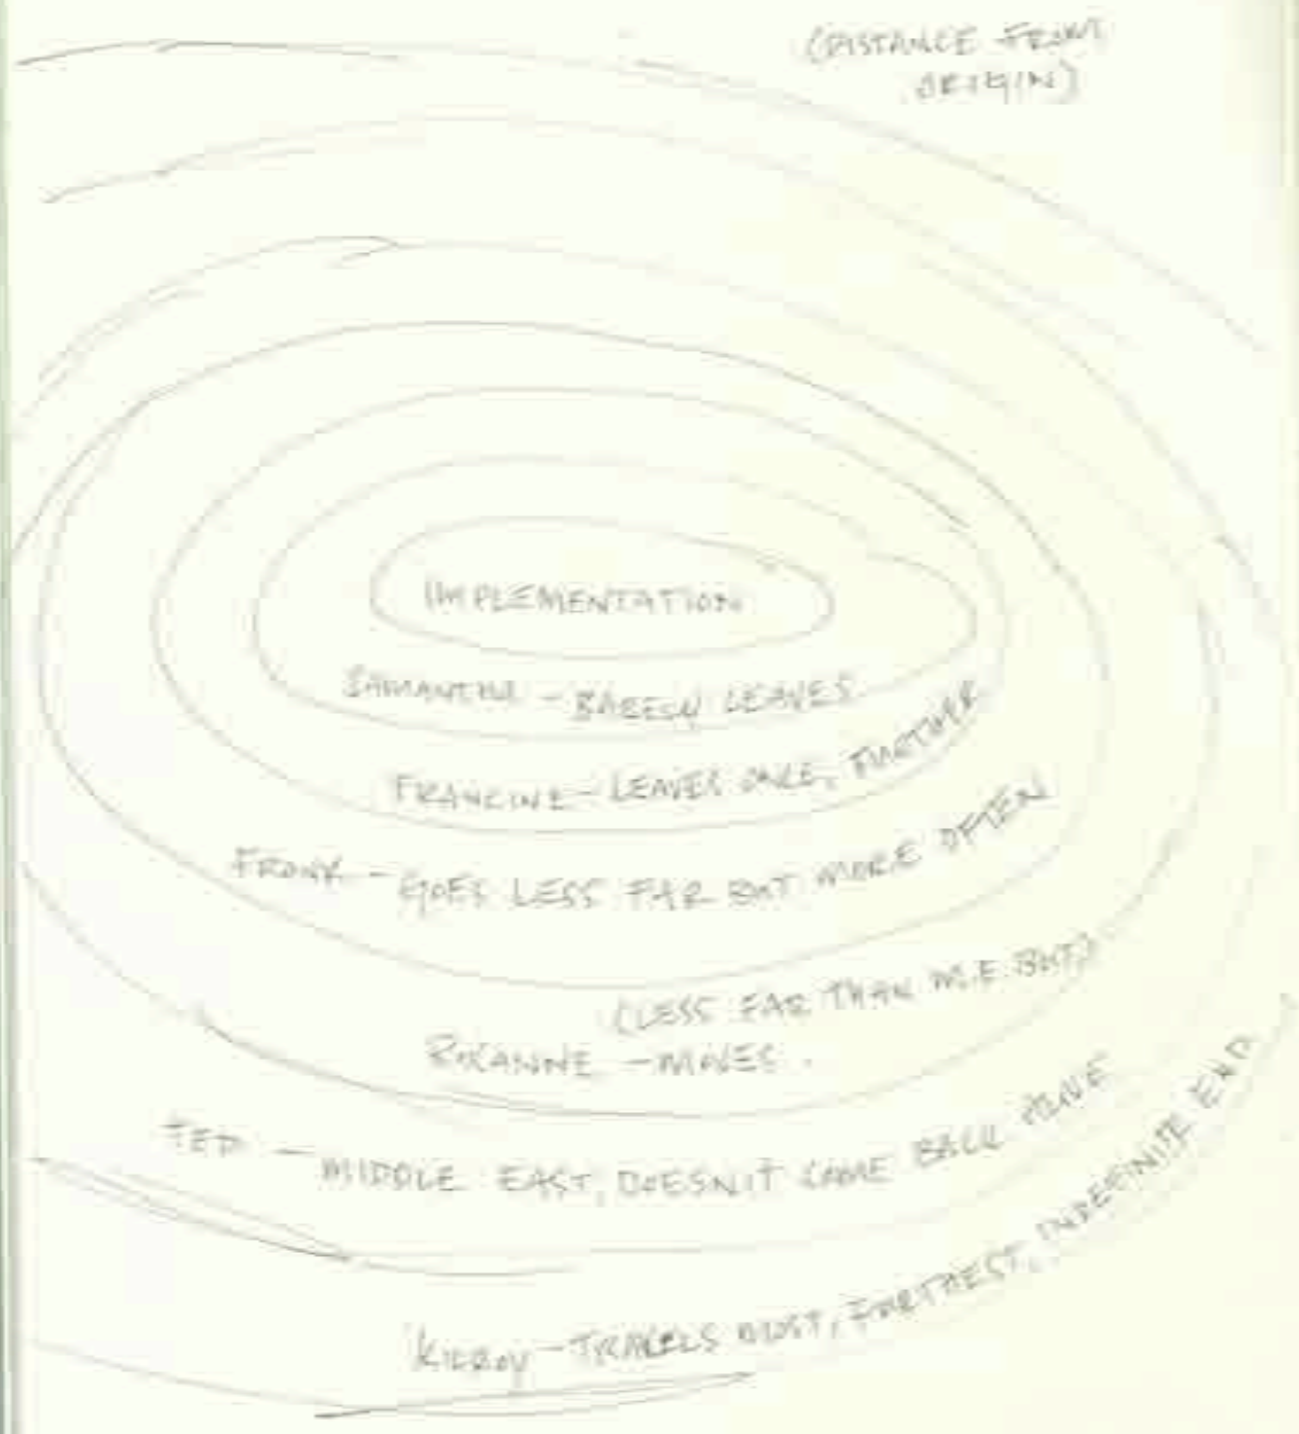 (DISTANCE FROM
ORIGIN)
IMPLEMENTATION
SAMANTHA - BARELY LEAVES
FRANCINE - LEAVES ONCE, FURTHER
FRONK - GOES LESS FAR BUT MORE OFTEN
(LESS FAR THAN M.E. BUT)
ROXANNE - MOVES.
TED - MIDDLE EAST, DOESN'T COME BACK ALIVE
KILROY - TRAVELS MOST, FURTHEST, INDEFINITE END